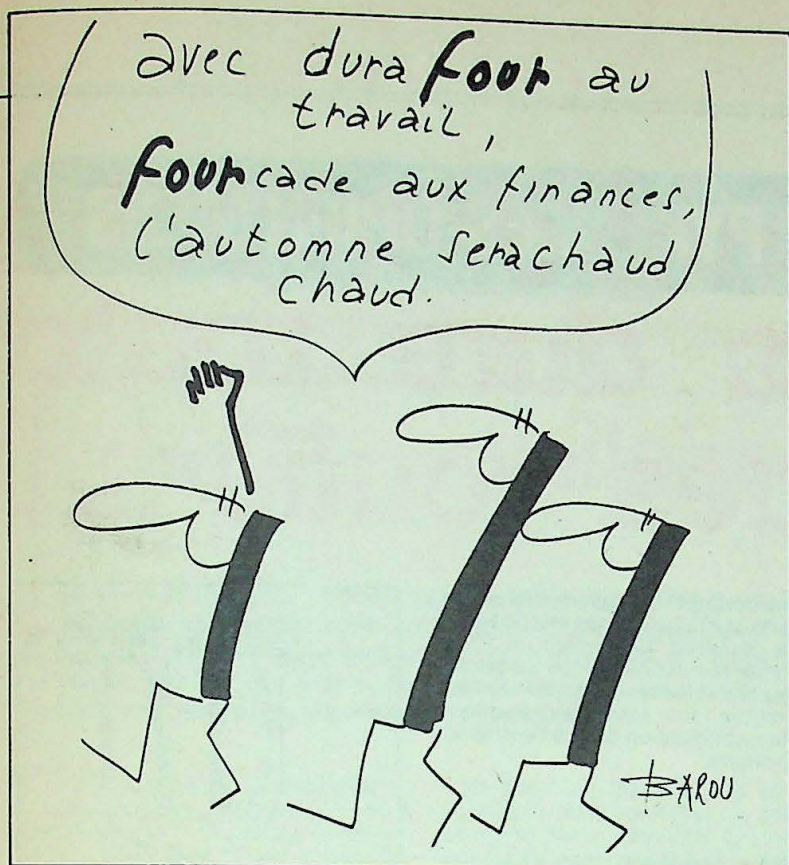 avec durafour au
travail,
fourcade aux finances,
l'automne sera chaud
chaud.
BAROU